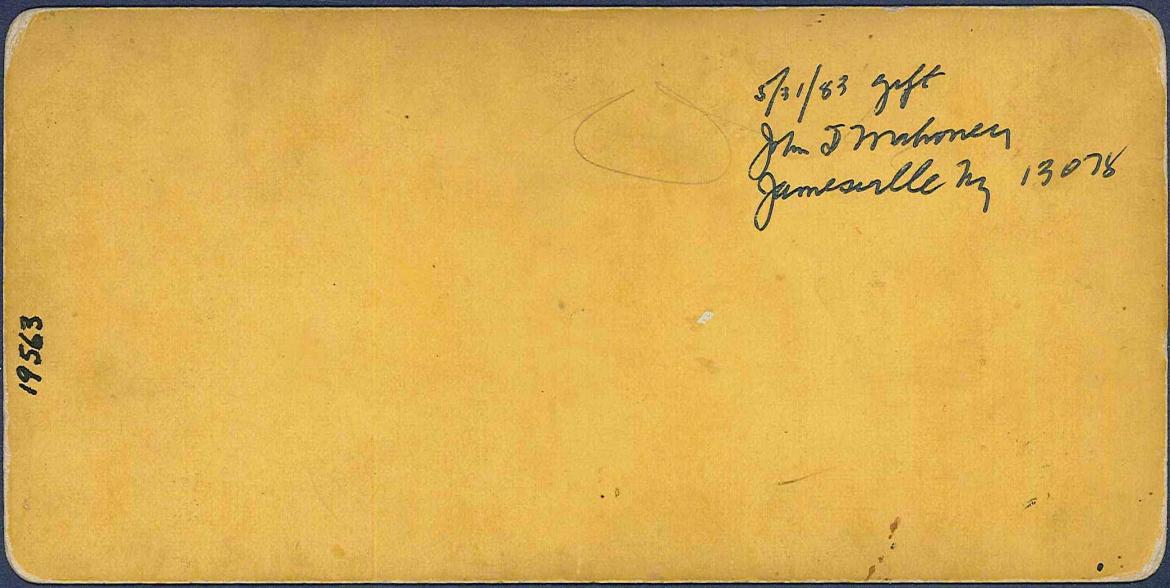 5/31/83 gift
John J Mahoney
Jamesville Ny 13078
19563